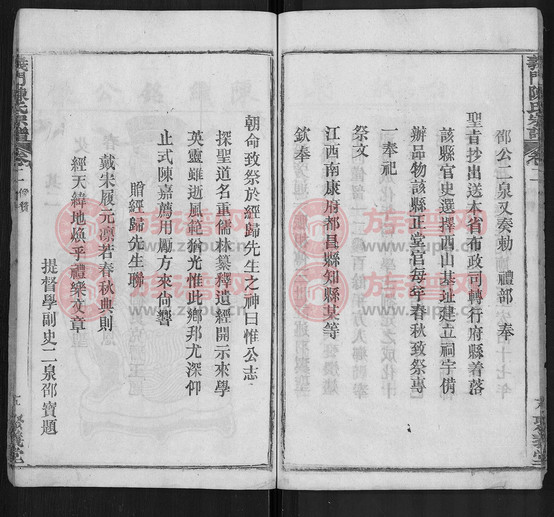 邵公二泉又奏勅 禮部 奉
聖旨抄出送本省布政司轉行府縣着落
該縣官史選擇西山基址建立祠宇備
辦品物該縣正堂官每年春秋致祭專
一奉祀
祭文
江西南康府都昌縣知縣某等
欽奉
朝命致祭於經歸先生之神曰惟公志
探聖道名重儒林纂釋遺經開示來學
英靈雖逝風範猶光惟此鄉邦尤深仰
止式陳嘉薦用鳳方來尚饗
贈經歸先生聯
首戴宋履元凛若春秋典則
經天緯地煥乎禮樂文章
提督學副史二泉邵寶題
義門陳氏宗譜 卷二
聚義堂
義門陳氏宗譜 卷二
聚義堂
族譜网
www.zupu.cn